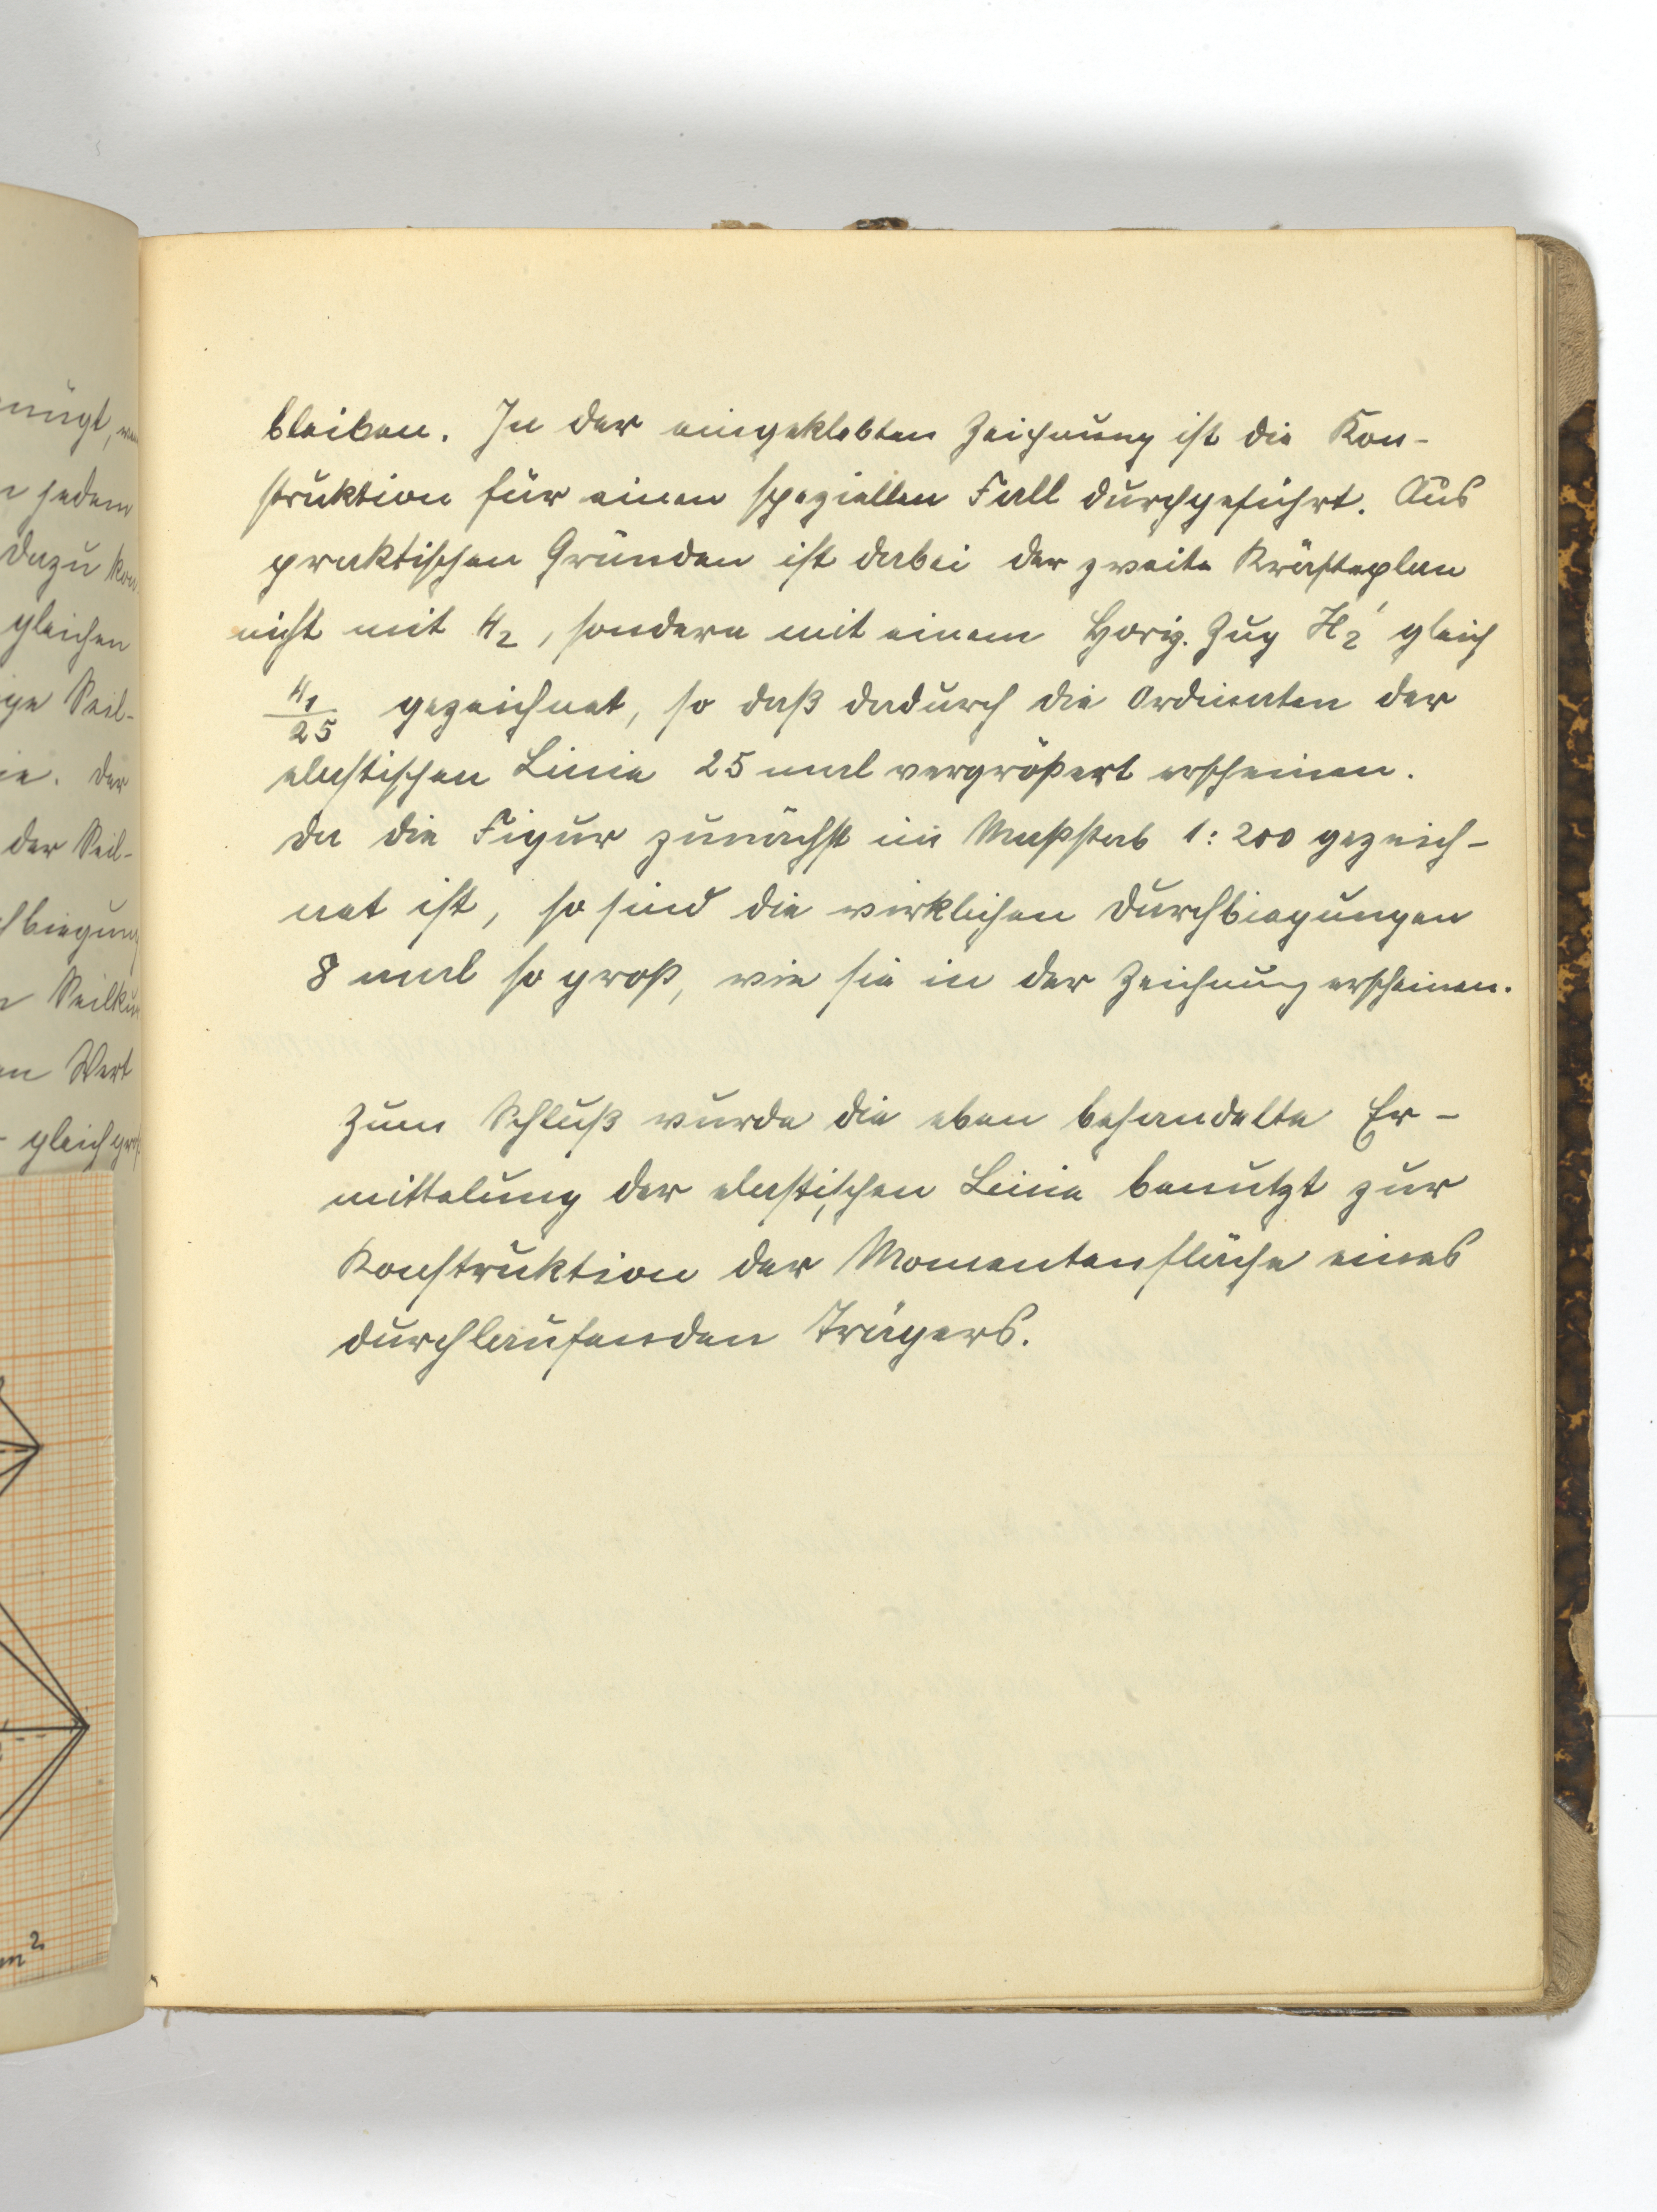 nügt,
jedem
dazu
gleichen
Seil-
der
der Seil-
biegung
Wert
gleich
m²
bleiben. In der eingeklebten Zeichnung ist die Kon-
struktion für einen speziellen Fall durchgeführt. Aus
praktischen Gründen ist dabei der zweite Kräfteplan
nicht mit H₂, sondern mit einem Horiz. Zug H₂' gleich
H₁/25 gezeichnet, so daß dadurch die Ordinaten der
elastischen Linie 25 mal vergrößert erscheinen.
Da die Figur zunächst im Maßstab 1:200 gezeich-
net ist, so sind die wirklichen Durchbiegungen
8 mal so groß, wie sie in der Zeichnung erscheinen.
Zum Schluß wurde die eben behandelte Er-
mittelung der elastischen Linie benutzt zur
Konstruktion der Momentenfläche eines
durchlaufenden Trägers.